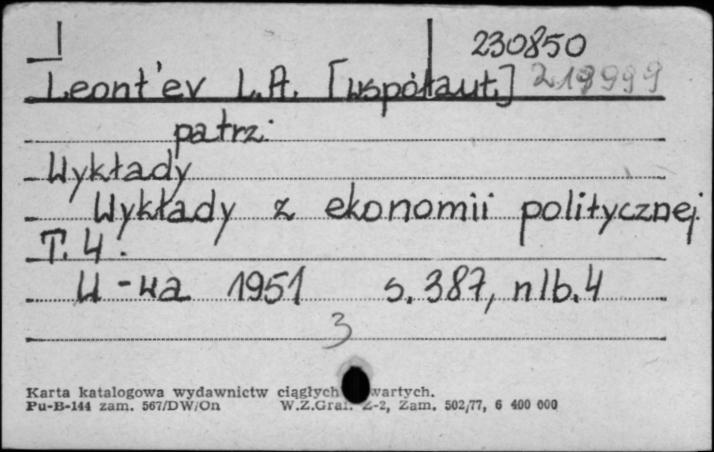 230850
Leont'ev L.A. [współaut.] 219999
patrz:
Wykłady
Wykłady z ekonomii politycznej.
T. 4.
W-wa 1951 s. 387, nlb. 4
3
Karta katalogowa wydawnictw ciągłych wartych.
Pu-B-144 zam. 567/DW/On W.Z.Graf. Z-2, Zam. 502/77, 6 400 000